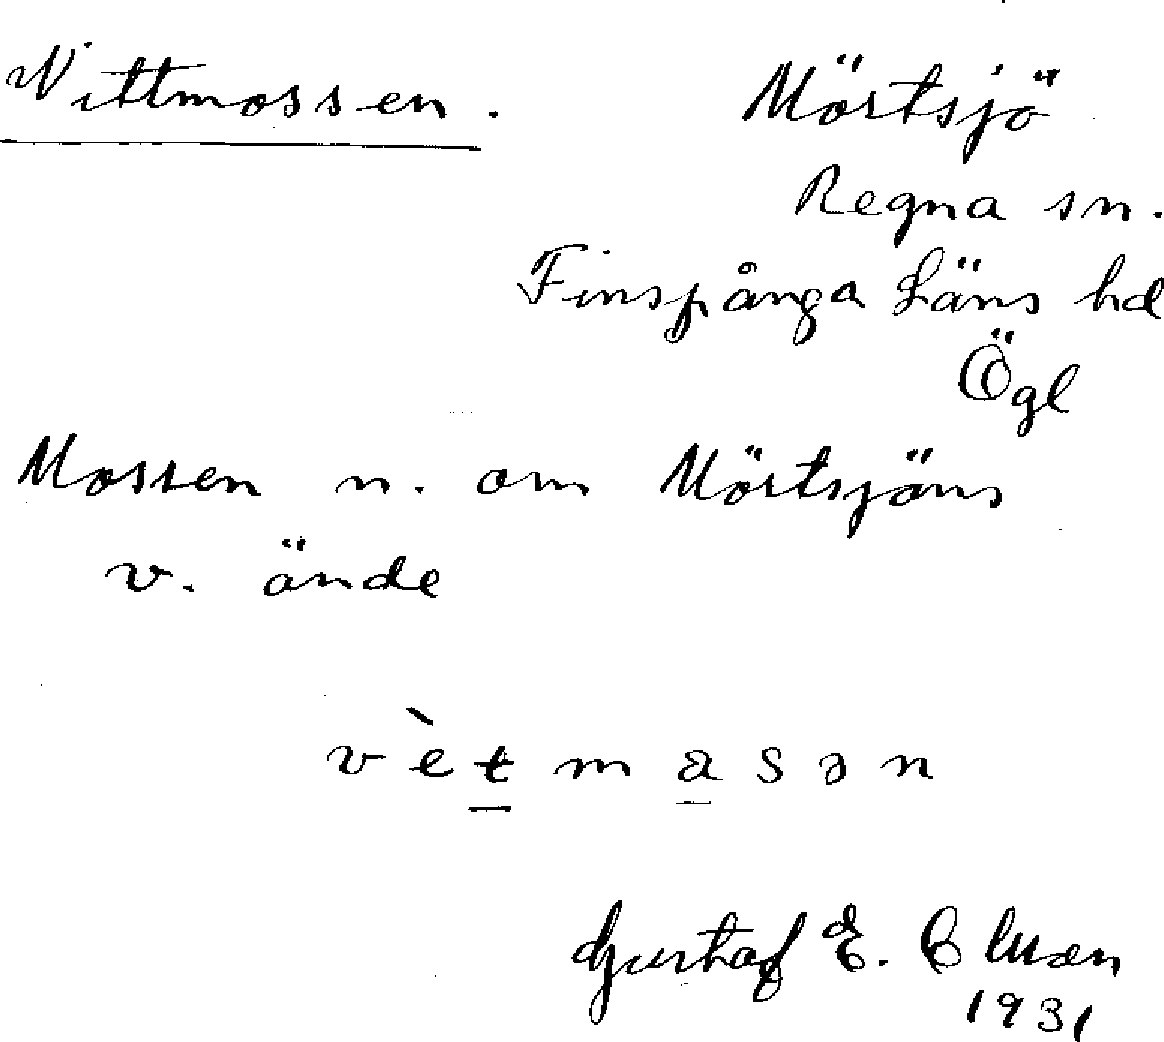 Vittmossen.
Mörtsjö
Regna sn.
Finspånga Läns hd
Ögl
Mossen n. om Mörtsjöns
v. ände
vètmasən
Gustaf E.
1931